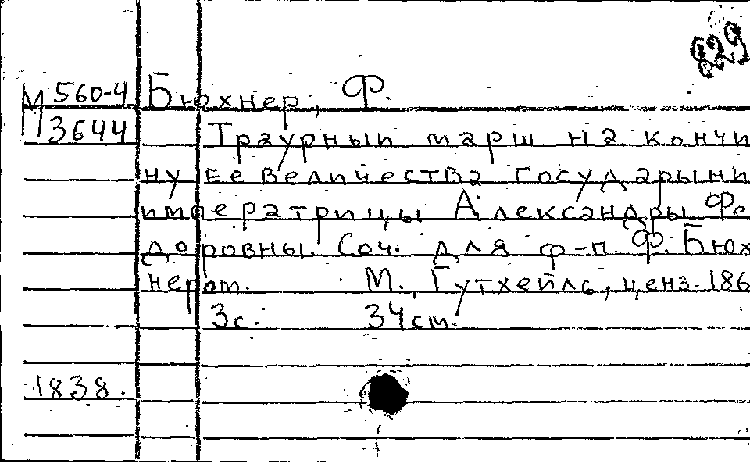 829
М 560-4 Бюхнер, Ф.
3644 Траурный марш на кончи
ну ее величества государыни
императрицы Александры Фе
доровны. Соч. для ф-п Ф. Бюх
нером. М., Гутхейль, ценз. 186
3с. 34см.
1838.